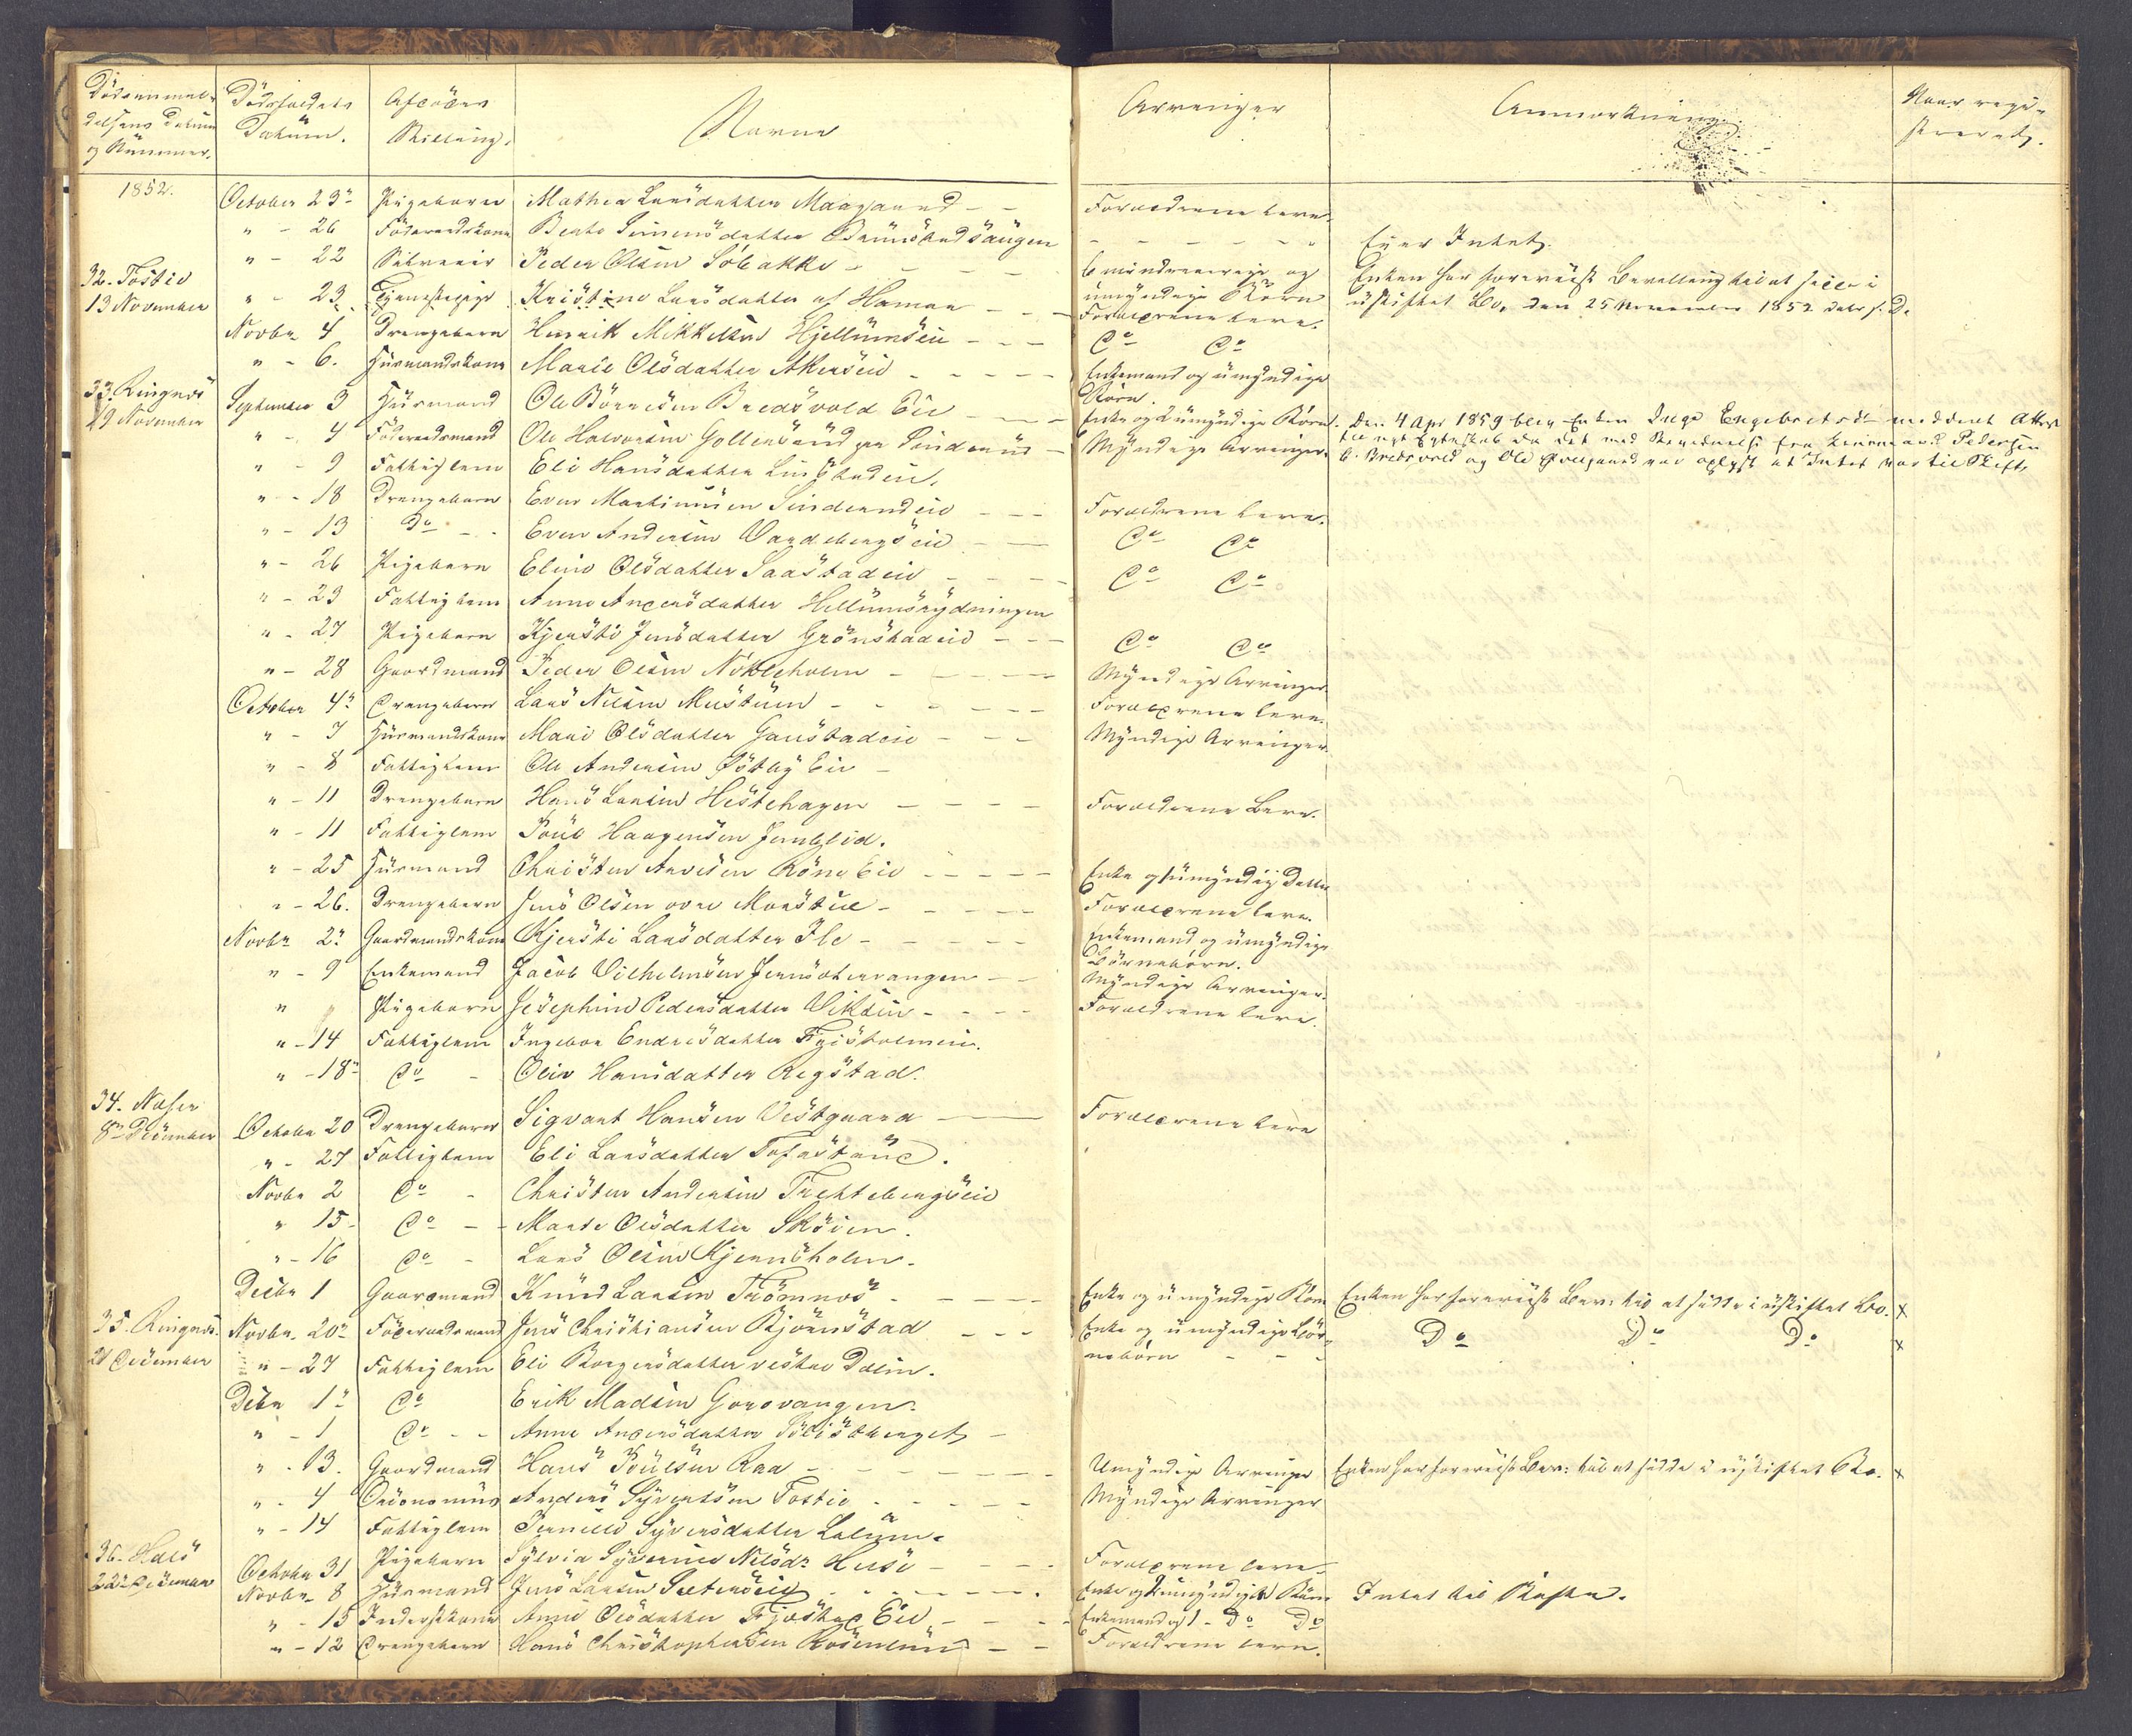 Dødsanmel-
delsens Datum
og Nummer.
Dødsfaldets
Datum.
Afdødes
Stilling.
Navne
Arvinger
Anmærkning.
Naar regi-
streret.
1852.
October 23de Pigebarn Mathea Larsdatter Maagaard - - Forældrene leve.
" - 26 Føderaadskone Beate Simensdatter - - - Eier Intet.
" - 22 Selveier Peder Olsen Solbakke - - - 6 mindreaarige og umyndige Børn Enken har foreviist Bevilling til at sidde i
uskiftet Bo, den 25 November 1852
32. Tostie
13 November
" - 23 Tjenestepige Kristine Larsdatter af Haman - - - Forældrene leve.
Novbr 4 Drengebarn Henrik Mikkelsen Hjellumseie - - - Do Do
" - 6. Huusmandskone Marie Olsdatter Akerseie - - - Enkemand og umyndige
Børn.
33. Ringnæs
29 November
September 3 Huusmand Ole Børresen Bredsvold Eie - - Enke og umyndige Børn. Den 4 Apr 1859 blev Enken Inge Engebretsdr meddeelt Attest
til nyt Egteskab da det med fra Peder Pedersen
Bredsvold og Ole var oplyst at Intet var til Skifte
" - 4 Føderaadsmand Ole Halvorsen Gollersrud - Myndige Arvinger.
" - 9 Fattiglem Eli Hansdatter
" - 18 Drengebarn Even Martinusen Sinderudeie - - Forældrene leve.
" - 13 Do - Even Andersen Vardebergseie - - Do Do
" - 26 Pigebarn Eline Olsdatter Saastadeie - - Do Do
" - 29 Fattiglem Anne Andersdatter Hellumsrydningen
" - 27 Pigebarn Kjersti Jensdatter Grønstadeie - - - Do Do
" - 28 Gaardmand Peder Olsen Nokleholm - - - Myndige Arvinger
October 4de Drengebarn Lars Nilsen Mustuen - - - Forældrene leve.
" - 7 Huusmandskone Mari Olsdatter Gaustadeie - - - Myndige Arvinger
" - 8 Fattiglem Ole Andersen Østby Eie -
" - 11 Drengebarn Hans Larsen Hestehagen - - - Forældrene Leve.
" - 11 Fattiglem Poul Haagensen Jemblid.
" - 25 Huusmand Christen Andersen Røne Eie - - - Enke og umyndig Datter
" - 26. Drengebarn Jens Olsen øvre Moestue - - - Forældrene leve.
Novbr 2de Gaardmandskone Kjersti Larsdatter Ile - - - Enkemand og umyndige
Børnebørn.
" - 9 Enkemand Jacob Vilhelmsen - - Myndige Arvinger.
" " Pigebarn Josephine Pedersdatter Vikseie - - - Forældrene leve.
" - 14 Fattiglem Ingebor Endresdatter
" - 18de Do - Olia Hansdatter Rygstad.
34. Næser
8de December
October 20 Drengebarn Sigvart Hansen Vestgaard - Forældrene leve
" - 27 Fattiglem Eli Larsdatter Tofastrud.
Novbr 2 Do - Christen Andersen Frettebergseie
" 15 - Do - - Marte Olsdatter Skøien.
" - 16 Do - Lars Olsen Kjernsholm.
Decbr 1 Gaardmand Knud Larsen Strømnæs - - - Enke og umyndige Børn Enken har foreviist Bev: til at sidde i uskiftet Bo. x
35. Ringnæs
21 December
Novbr. 20de Føderaadsmand Jens Christiansen Bjørnstad - - - Enke og umyndige Bør-
nebørn - - Do Do Do x
" - 27 Fattiglem Eli Borgersdatter vestre Dalen.
Debr 1de Do Erik Madsen Gorovangen.
" - 1 Do - - Anne Andersdatter -
" - 13. Gaardmand Hans Poulsen Raa - - - Umyndige Arvinger Enken har foreviist Bev: til at sidde i uskiftet Bo. x
" - 4 Oeconomus Anders Syvertsen Tostie - - - Myndige Arvinger
" - 14 Fattiglem Pernille Syversdatter Lalum.
36. Huse
22de December
October 31 Pigebarn Sylvia Syverine Nilsdr Huse - - - Forældrene leve.
Novbr. 8 Huusmand Jens Larsen Seterseie - - - Enke og umyndige Børn Intet til Skifte.
" - 15 Inderstkone Anne Olsdatter Fjøstad Eie - - - Enkemand og 1 - Do Do
" - 12 Drengebarn Hans Christophersen Rosenlund - - Forældrene leve.